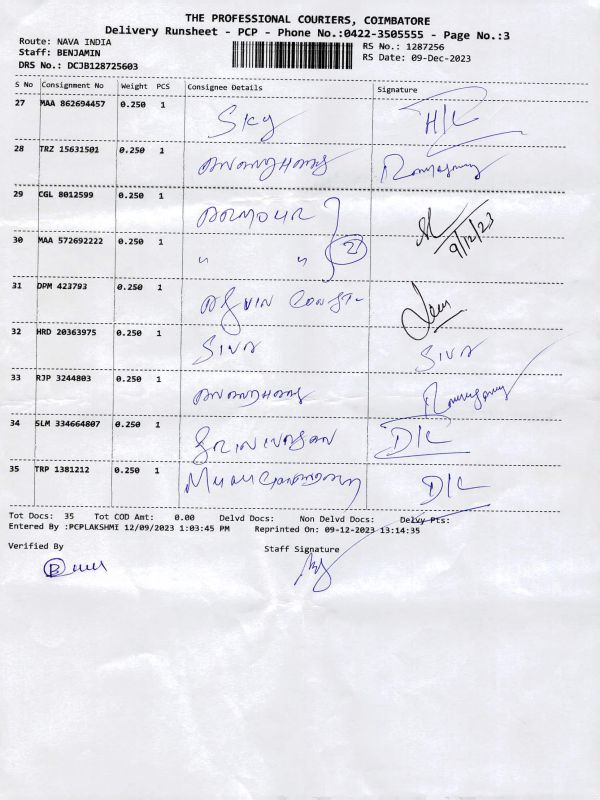 THE PROFESSIONAL COURIERS, COIMBATORE
Delivery Runsheet - PCP - Phone No.:0422-3505555 - Page No.:3
Route: NAVA INDIA
RS No.: 1287256
Staff: BENJAMIN
RS Date: 09-Dec-2023
DRS No.: DCJB128725603
S No Consignment No Weight PCS Consignee Details Signature
27 MAA 862694457 0.250 1 Sky H/L
28 TRZ 15631501 0.250 1
29 CGL 8012599 0.250 1 ARMOUR 9/12/23
30 MAA 572692222 0.250 1 " " 2
31 DPM 423793 0.250 1 CONST-
32 HRD 20363975 0.250 1 SIVA SIVA
33 RJP 3244803 0.250 1
34 SLM 334664807 0.250 1 SRINIVASAN D/L
35 TRP 1381212 0.250 1 D/L
Tot Docs: 35 Tot COD Amt: 0.00 Delvd Docs: Non Delvd Docs: Delvy Pts:
Entered By :PCPLAKSHMI 12/09/2023 1:03:45 PM Reprinted On: 09-12-2023 13:14:35
Verified By Staff Signature